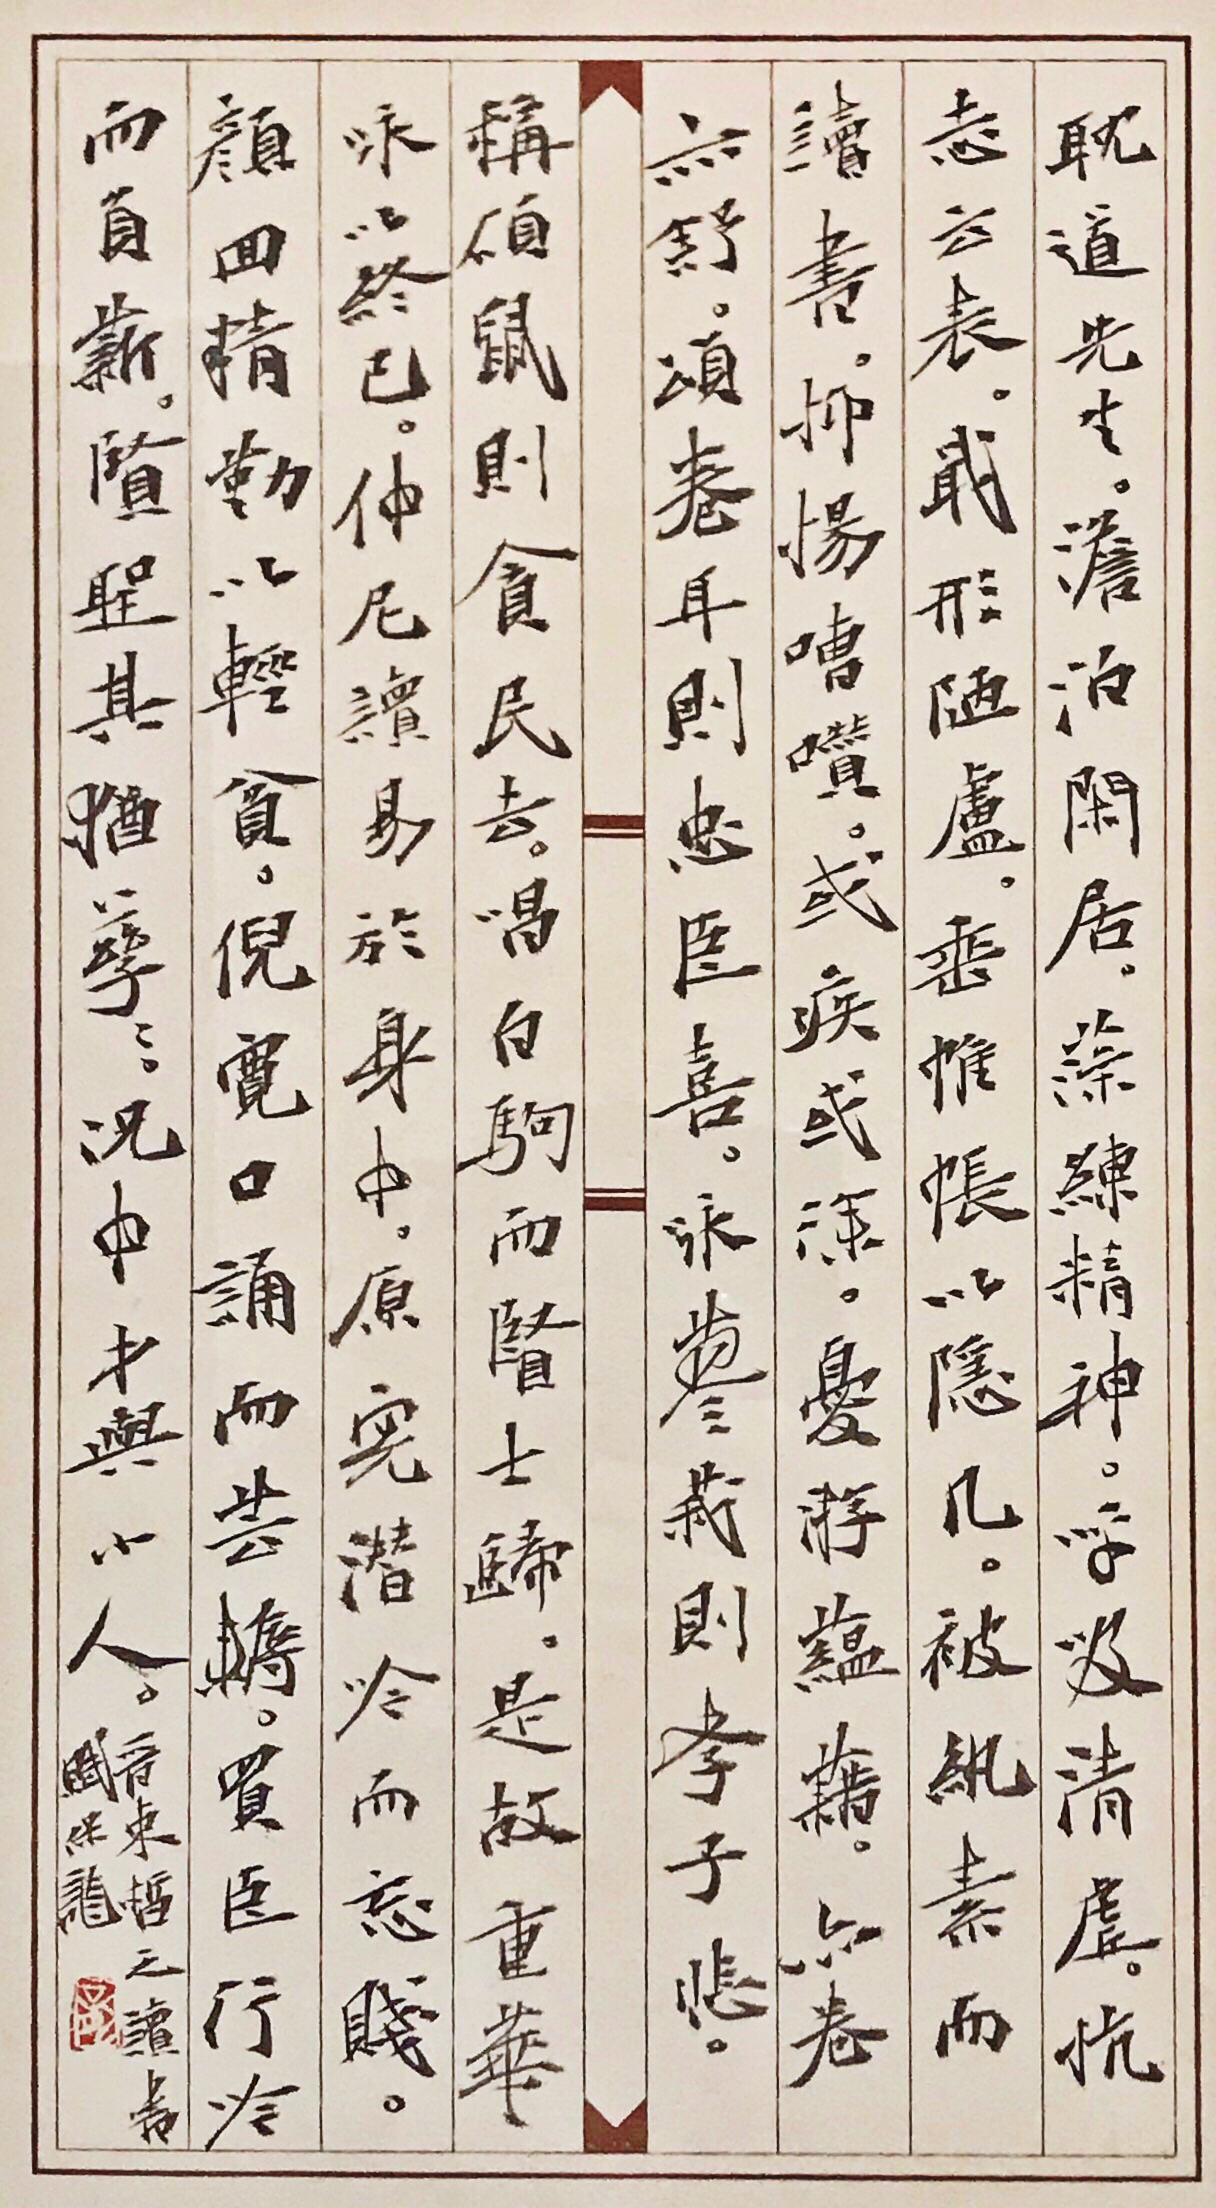 耽道先生。澹泊閑居。藻練精神。呼吸清虛。抗
志云表。戢形陋盧。垂帷帳以隱几。被紈素而
讀書。抑揚嘈囋。或疾或徐。憂游蘊藉。亦卷
亦舒。頌卷耳則忠臣喜。咏蓼莪則孝子悲。
稱碩鼠則貪民去。唱白駒而賢士歸。是故重華
咏以終已。仲尼讀易於身中。原宪潜吟而忘賤。
顏回精勤以輕貧。倪寬口誦而芸耨。買臣行吟
而負薪。賢聖其猶孳〻。況中才與小人。
晉束晳之讀書
賦保龍